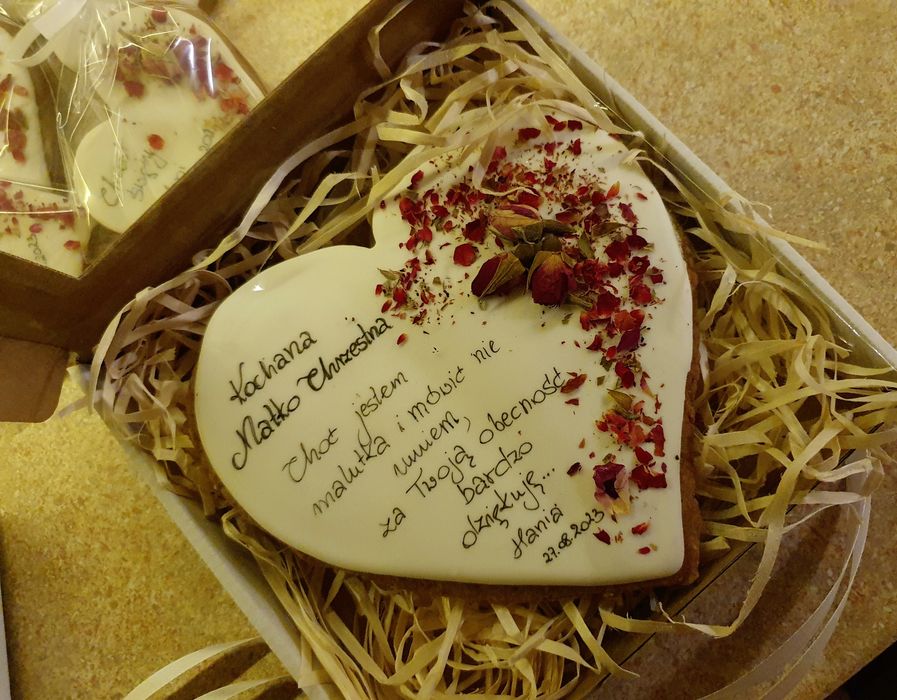 Kochana
Matko Chrzestna
Choć jestem
malutka i mówić nie
umiem,
za Twoją obecność
bardzo
dziękuję...
Hania
27.08.2023